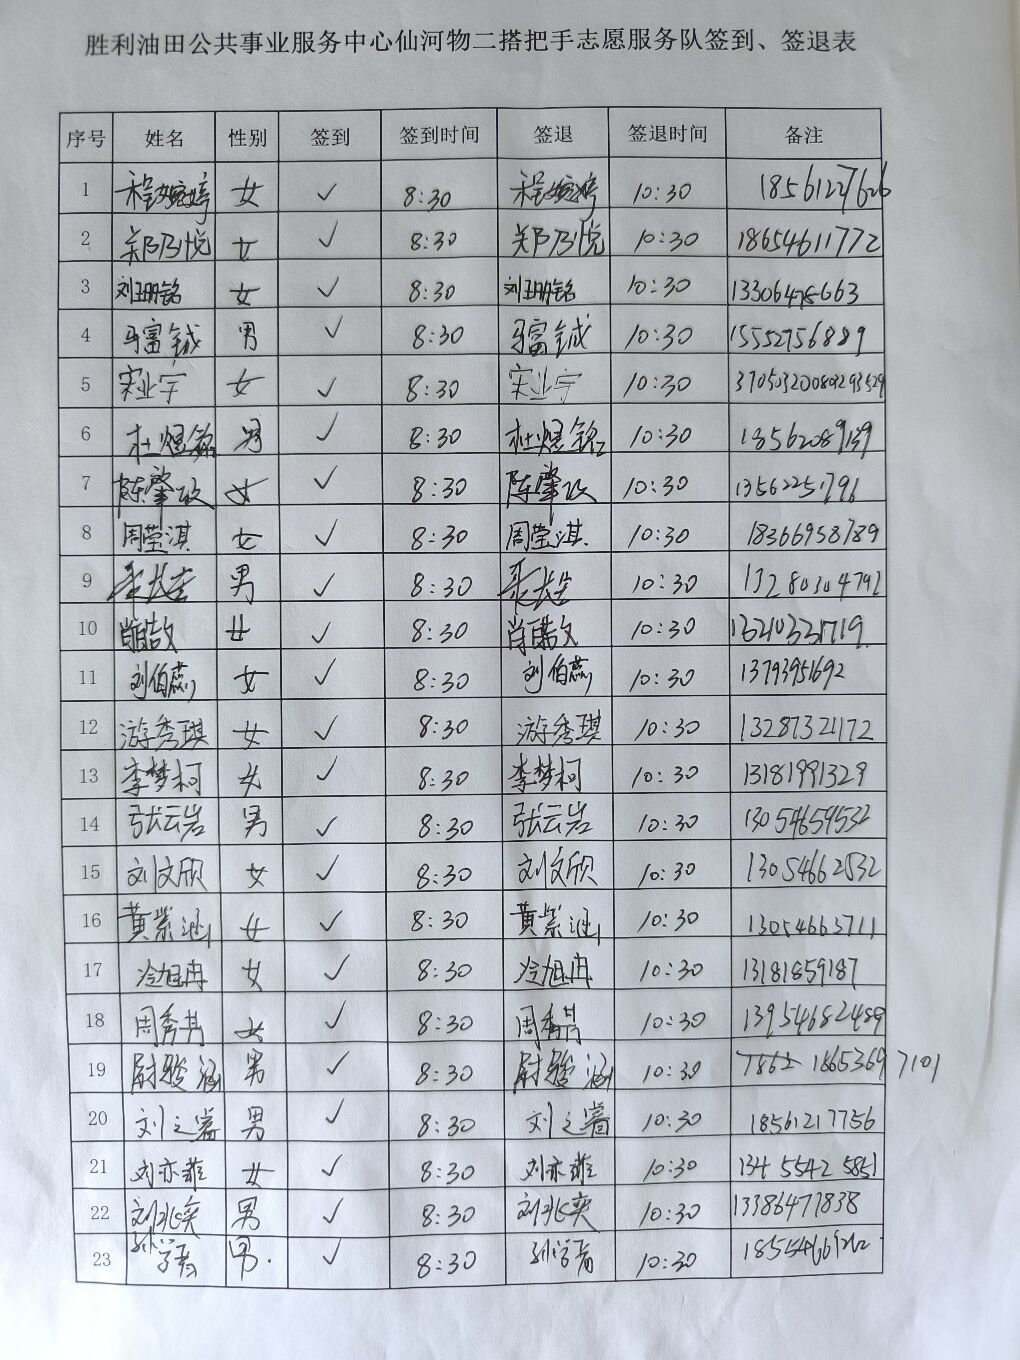 胜利油田公共事业服务中心仙河物二搭把手志愿服务队签到、签退表
序号 姓名 性别 签到 签到时间 签退 签退时间 备注
1 程婉婷 女 ✓ 8:30 程婉婷 10:30 18561227626
2 郑乃悦 女 ✓ 8:30 郑乃悦 10:30 18654611772
3 刘珊铭 女 ✓ 8:30 刘珊铭 10:30
4 马富铖 男 ✓ 8:30 马富铖 10:30 15552756889
5 宋业宇 女 ✓ 8:30 宋业宇 10:30
6 杜煜铭 男 ✓ 8:30 杜煜铭 10:30
7 陈肇政 女 ✓ 8:30 陈肇政 10:30 13562251791
8 周莹淇 女 ✓ 8:30 周莹淇 10:30 18366958789
9 男 ✓ 8:30 10:30 13280304792
10 女 ✓ 8:30 10:30
11 刘伯蕊 女 ✓ 8:30 刘伯蕊 10:30 13793951692
12 游秀琪 女 ✓ 8:30 游秀琪 10:30 13287321172
13 李梦柯 女 ✓ 8:30 李梦柯 10:30 13181991329
14 张云岩 男 ✓ 8:30 张云岩 10:30 13054659532
15 刘文欣 女 ✓ 8:30 刘文欣 10:30 13054662532
16 黄紫涵 女 ✓ 8:30 黄紫涵 10:30 13054663711
17 冷旭冉 女 ✓ 8:30 冷旭冉 10:30 13181859187
18 周秀 女 ✓ 8:30 周秀 10:30 13954682489
19 尉骏涵 男 ✓ 8:30 尉骏涵 10:30 7862 18653697101
20 刘之睿 男 ✓ 8:30 刘之睿 10:30 18561217756
21 刘亦菲 女 ✓ 8:30 刘亦菲 10:30 134 5542 5851
22 刘兆奕 男 ✓ 8:30 刘兆奕 10:30 13386477838
23 男 ✓ 8:30 10:30